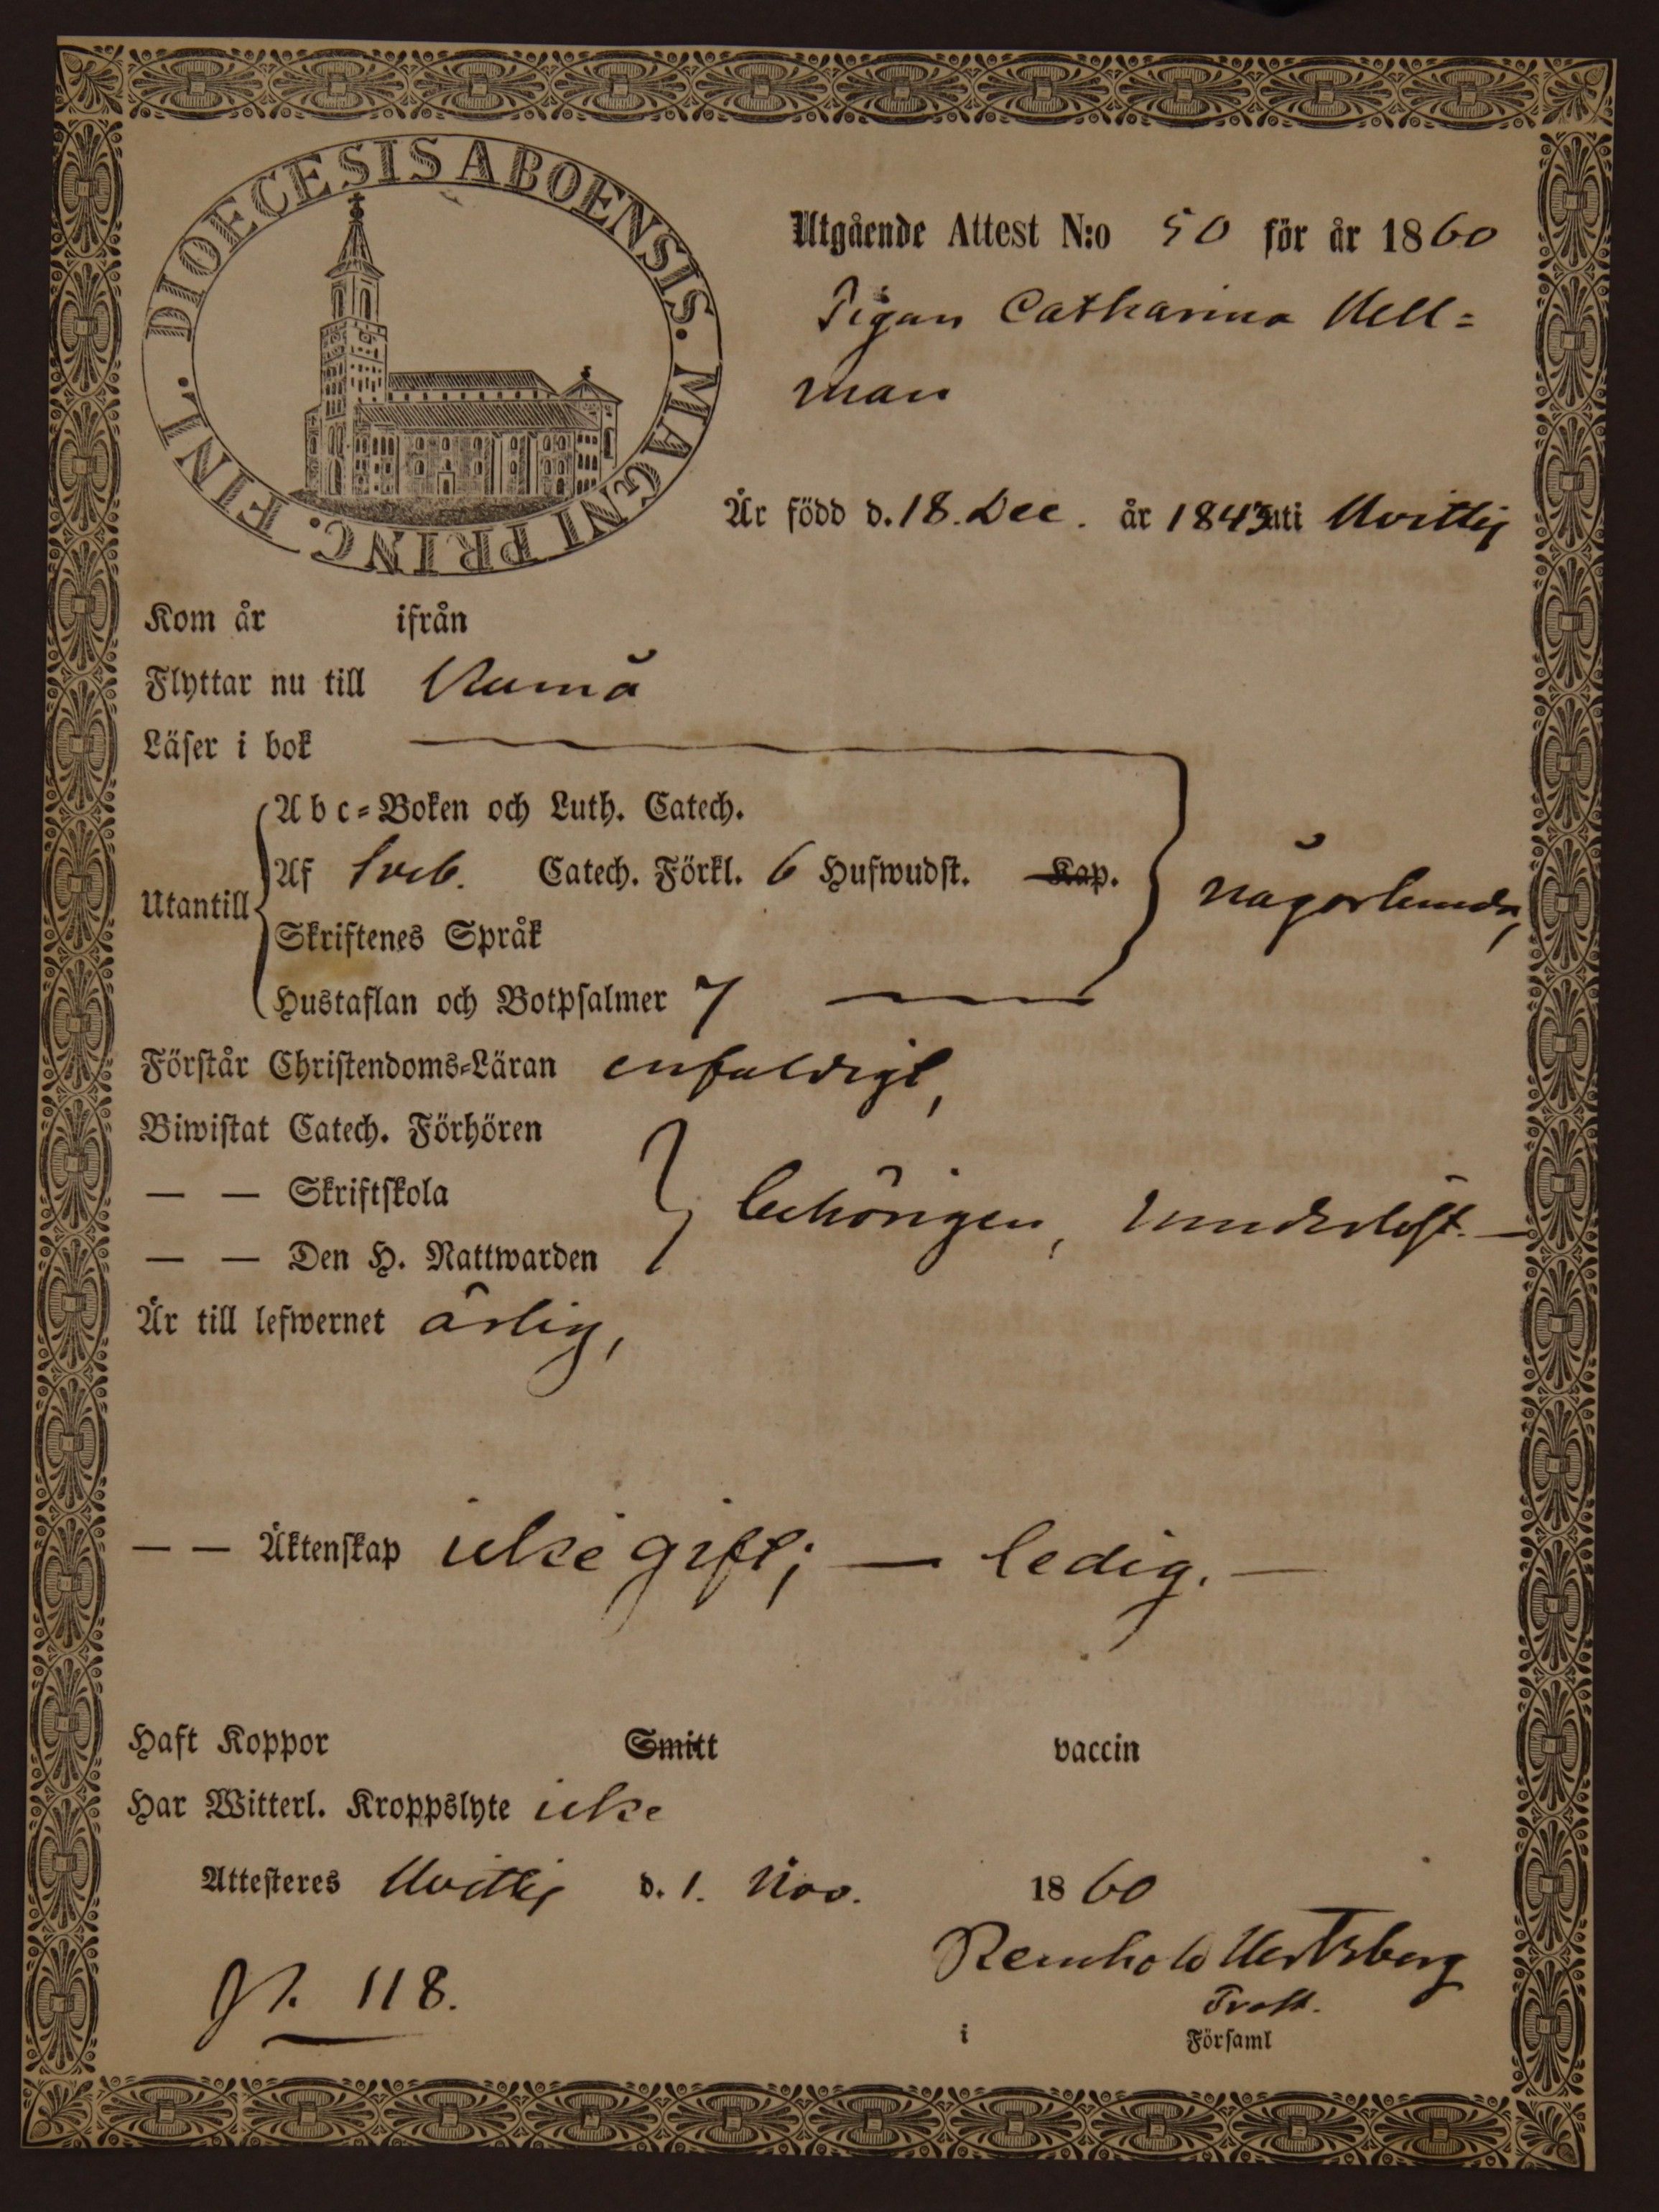 DIOECESIS ABOENSIS. MAGNI PRINC. FINL.
Utgående Attest N:o 50 för år 1860
Pigan Catharina Hell=
man
Är född d. 18. Dec. år 1843 uti Hvittis
Kom år ifrån
Flyttar nu till Raumå
Läser i bok
Utantill
A b c=Boken och Luth. Catech.
Af Sveb. Catech. Förkl. 6 Hufwudst. Kap.
någorlunda,
Skriftenes Språk
Hustaflan och Botpsalmer 7
Förstår Christendoms=Läran enfaldigt,
Biwistat Catech. Förhören
— — Skriftskola
behörigen,
— — Den H. Nattwarden
Är till lefwernet ärlig,
— — Äktenskap icke gift; — ledig. —
Haft Koppor Smitt vaccin
Har Witterl. Kroppslyte icke
Attesteres Hvittis d. 1. Nov. 1860
Reinhold Hertzberg
Prost.
118.
i Församl